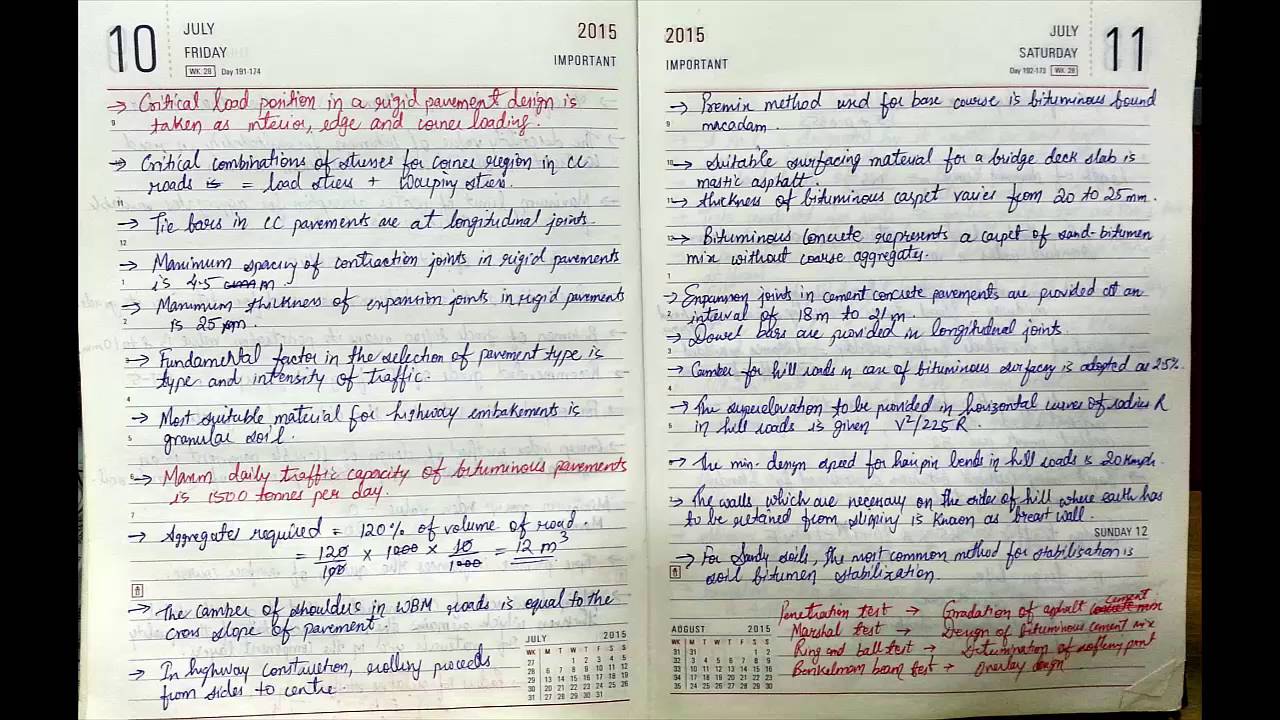 10
JULY
FRIDAY
WK 28 Day 191-174
2015
IMPORTANT
→ Critical load position in a rigid pavement design is
taken as interior, edge and corner loading.
→ Critical combinations of stresses for corner region in CC
roads is = load stress + Warping stress.
→ Tie bars in CC pavements are at longitudinal joints.
→ Maximum spacing of contraction joints in rigid pavements
is 4.5 m
→ Maximum thickness of expansion joints in rigid pavement
is 25 mm.
→ Fundamental factor in the selection of pavement type is
type and intensity of traffic.
→ Most suitable material for highway embakements is
granular soil.
→ Maxm daily traffic capacity of bituminous pavements
is 1500 tonnes per day.
→ Aggregates required = 120% of volume of road.
= 120/100 × 1000 × 10/1000 = 12 m³
→ The camber of shoulders in WBM roads is equal to the
cross slope of pavement.
→ In highway construction, rolling proceeds
from sides to centre
JULY 2015
WK M T W T F S S
27 1 2 3 4 5
28 6 7 8 9 10 11 12
29 13 14 15 16 17 18 19
30 20 21 22 23 24 25 26
31 27 28 29 30 31
2015
IMPORTANT
JULY
SATURDAY
Day 192-173 WK 28
11
→ Premix method used for base course is bituminous bound
macadam.
→ Suitable surfacing material for a bridge deck slab is
mastic asphalt.
→ thickness of bituminous carpet varies from 20 to 25 mm.
→ Bituminous concrete represents a carpet of sand-bitumen
mix without coarse aggregates.
→ Expansion joints in cement concrete pavements are provided at an
interval of 18 m to 21 m.
→ Dowel bars are provided in longitudinal joints.
→ Camber for hill roads in case of bituminous surfacing is adopted as 2.5%.
→ The superelevation to be provided in horizontal curves of radius R
in hill roads is given V²/225 R.
→ The min. design speed for hairpin bends in hill roads is 20 Kmph.
→ The walls which are necessary on the sides of hill where earth has
to be retained from slipping is known as breast wall.
SUNDAY 12
→ For Sandy soils, the most common method for stabilisation is
soil bitumen stabilization.
Penetration test → Gradation of asphalt cement
Marshal test → Design of bituminous cement mix
Ring and ball test → Determination of softening point
Benkelman beam test → Overlay design
AUGUST 2015
WK M T W T F S S
31 31 1 2
32 3 4 5 6 7 8 9
33 10 11 12 13 14 15 16
34 17 18 19 20 21 22 23
35 24 25 26 27 28 29 30